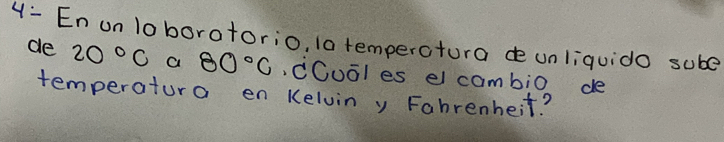 4:- En un laboratorio, la temperatura de un liquido sube
de 20 °C a 80 °C. ¿Cuál es el cambio de
temperatura en Kelvin y Fahrenheit?